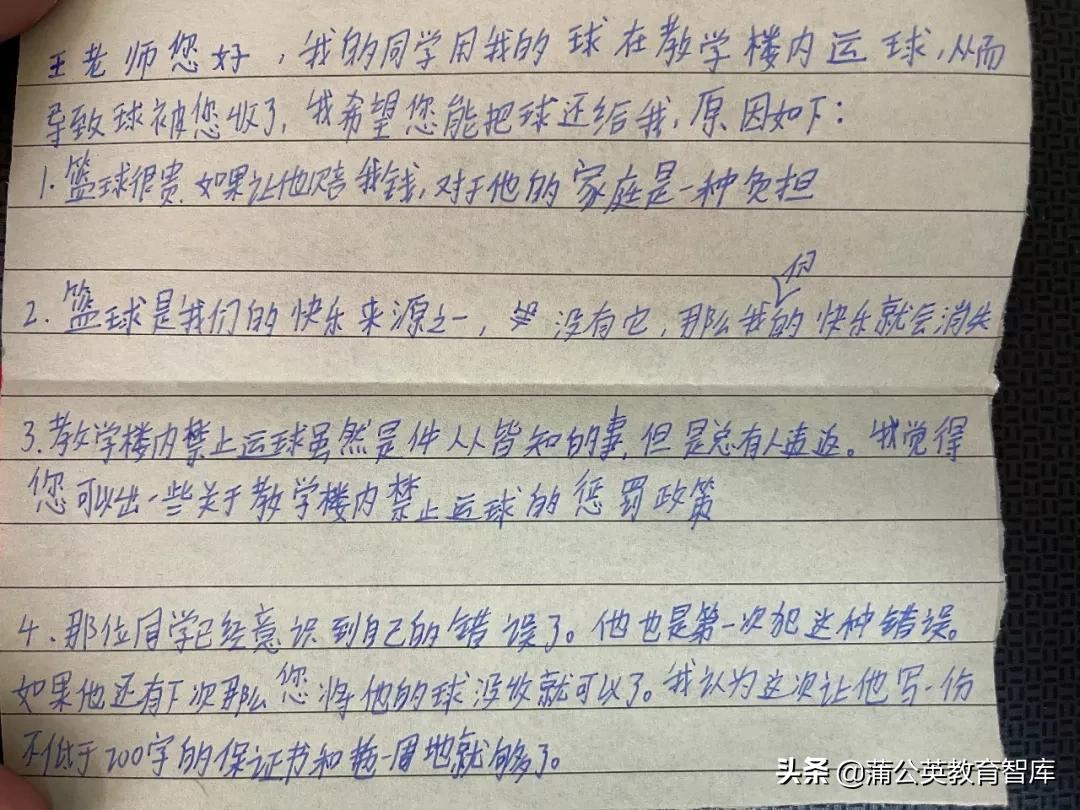 王老师您好，我的同学用我的球在教学楼内运球，从而
导致球被您收了，我希望您能把球还给我，原因如下：
1.篮球很贵.如果让他赔我钱，对于他的家庭是一种负担
2.篮球是我们的快乐来源之一，没有它，那么我们的快乐就会消失
3.教学楼内禁止运球虽然是件人人皆知的事，但是总有人违返。我觉得
您可以出一些关于教学楼内禁止运球的惩罚政策
4.那位同学已经意识到自己的错误了。他也是第一次犯这种错误。
如果他还有下次那么您将他的球没收就可以了。我认为这次让他写一份
不低于200字的保证书和拖一周地就够了。
头条 @蒲公英教育智库